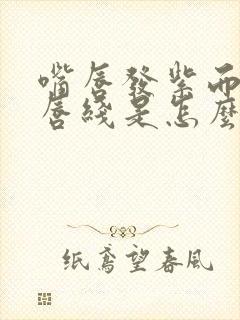 嘴唇發紫而
唇綫是怎麽
纸鸢望春風